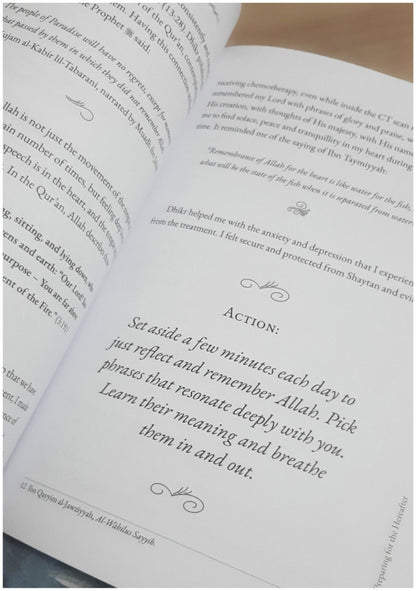 (13:28). Dhikr
of the Qur'an,
Having this connection
the Prophet ﷺ said:
The people of Paradise will have no regrets, except for
that passed by them in which they did not remember
al-Kabir lil-Tabarani, narrated by Muadh
is not just the movement of the
number of times, but feeling
speech is in the heart, and the
In the Qur'an, Allah describes
sitting, and lying down,
and earth: "Our Lord!
purpose – You are far above
of the Fire." (3:191)
receiving chemotherapy, even while inside the CT scan
remembered my Lord with phrases of glory and praise,
His creation, with thoughts of His majesty, with His
me to find solace, peace and tranquillity in my heart during
time. It reminded me of the saying of Ibn Taymiyyah:
"Remembrance of Allah for the heart is like water for the fish.
what will be the state of the fish when it is separated from water
Dhikr helped me with the anxiety and depression that I
from the treatment. I felt secure and protected from Shaytan and
ACTION:
Set aside a few minutes each day to
just reflect and remember Allah. Pick
phrases that resonate deeply with you.
Learn their meaning and breathe
them in and out.
12 Ibn Qayyim al-Jawziyyah, Al-Wabilus Sayyib.
Preparing for the Hereafter